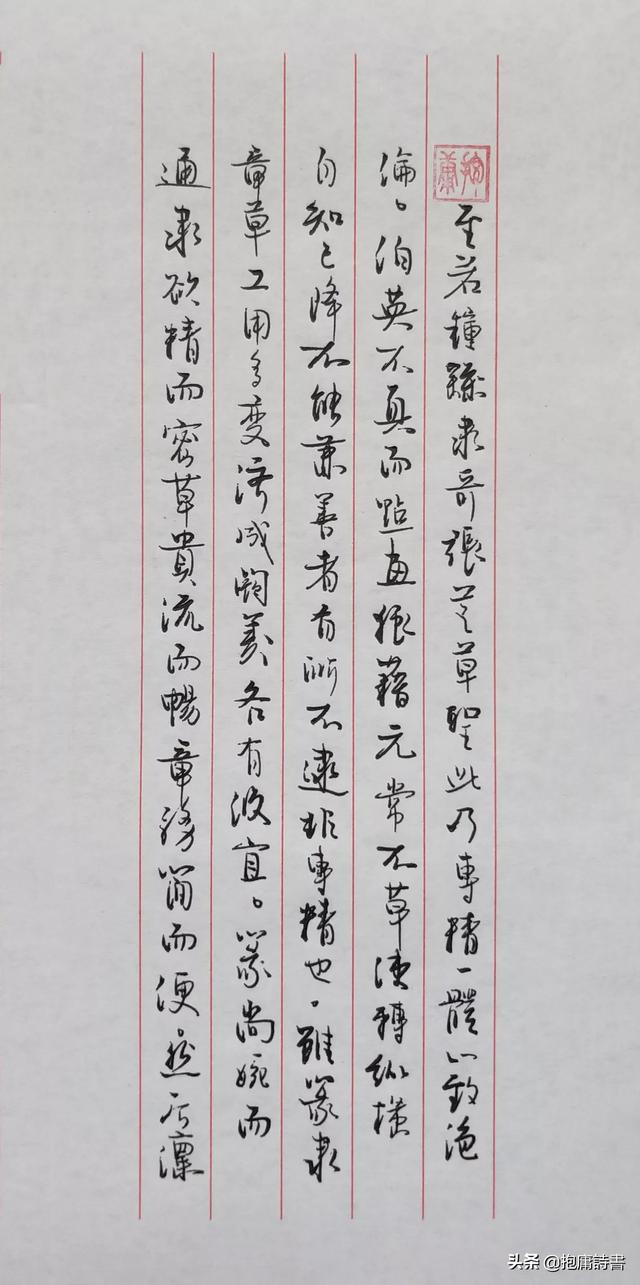 抱庸
至若鐘繇隸奇張芝草聖此乃專精一體以致絕
倫、伯英不真而點畫狼藉元常不草使轉縱橫
自知已降不能兼善者有所不逮非專精也、雖篆隸
章草工用多变濟成厥美各有攸宜。篆尚婉而
通隸欲精而密草貴流而暢章務簡而便、然后凜
头条 @抱庸詩書